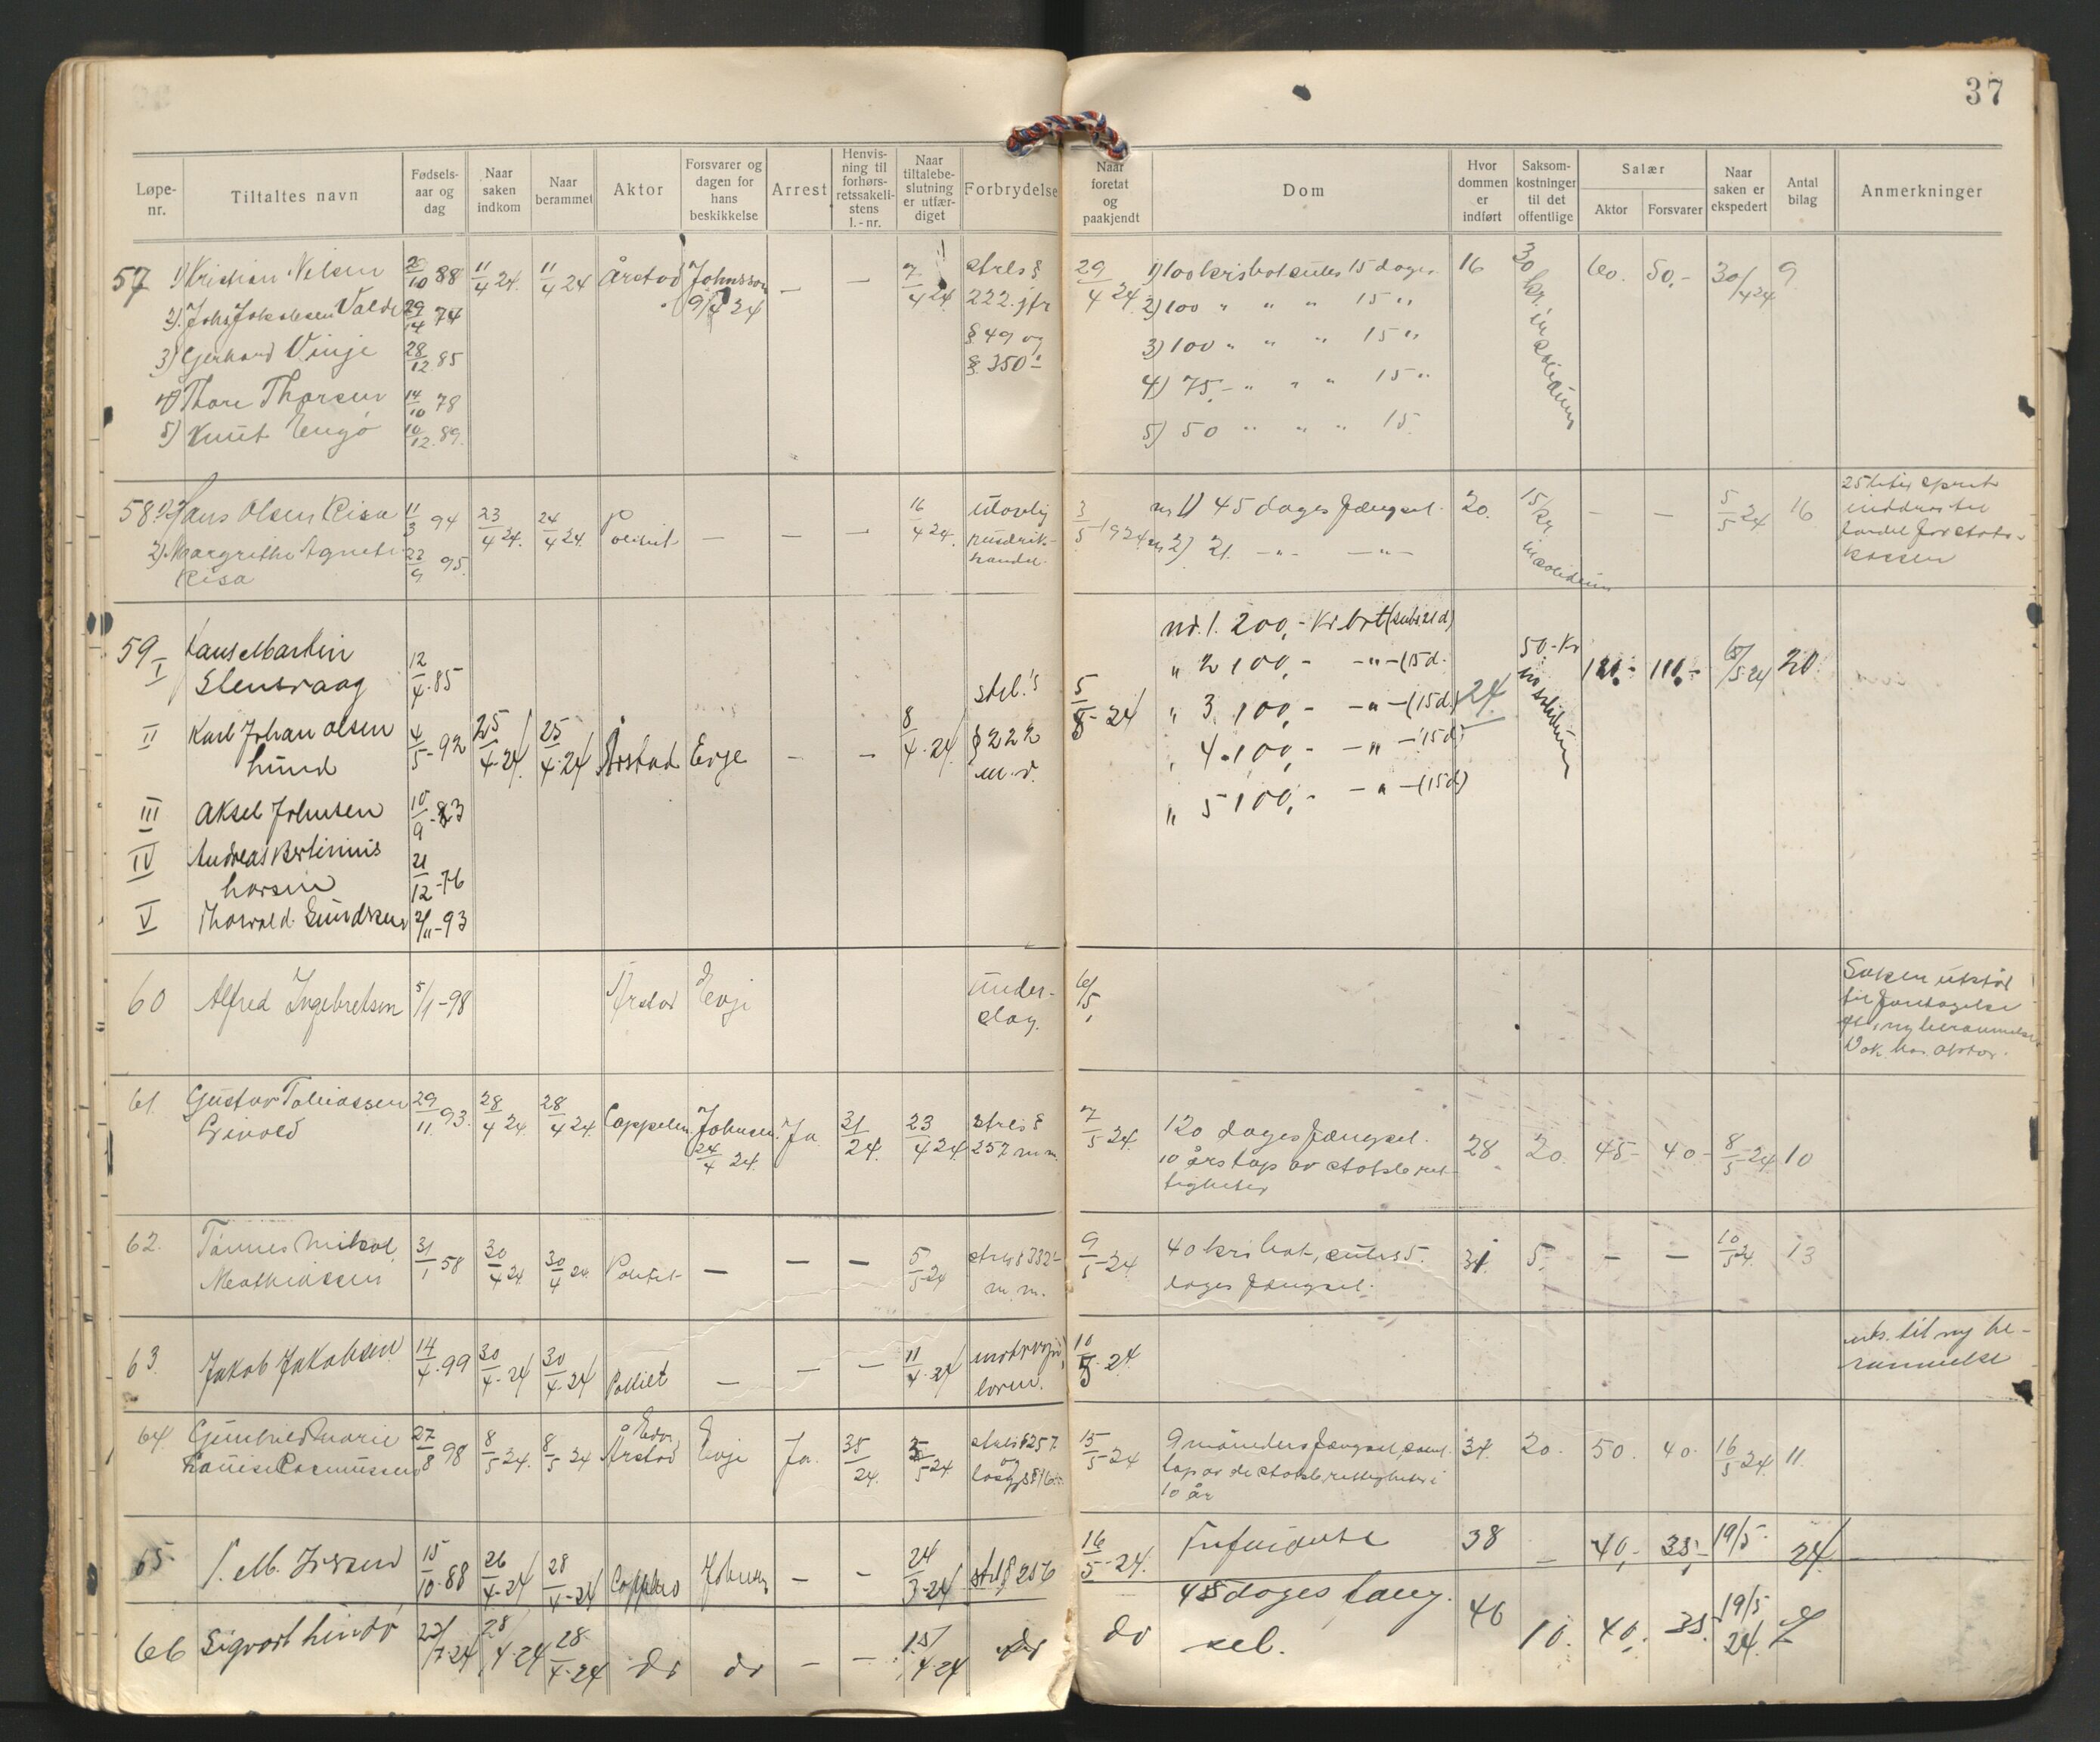 37
Løpe-nr.
Tiltaltes navn
Fødsels-aar og dag
Naar saken indkom
Naar berammet
Aktor
Forsvarer og dagen for hans beskikkelse
Arrest
Henvis-ning til forhørs-retssakeli-stens l.-nr.
Naar tiltalebe-slutning er utfær-diget
Forbrydelse
Naar foretat og paakjendt
Dom
Hvor dommen er indført
Saksom-kostninger til det offentlige
Salær
Aktor
Forsvarer
Naar saken er ekspedert
Antal bilag
Anmerkninger
57 1) Kristian Nelsen 88 11/4 24. 11/4 24 Årstad Johnsson — — 7/4 24. strls § 29/4 24. 1) 100 krs bot subs 15 dage. 16 30 kr. in solidum 60. 50,- 30/4 24 9
2). Johs Jakobsen Valde 74 9/4 24 222. jfr 2) 100 " " " 15 "
3) Gerhard Vinje 28/12 85 § 49 og 3) 100 " " " 15 "
4) Thore Thorsen 14/10 78 § 350 4) 75,- " " " 15 "
5) Knut Engø 10/12. 89. 5) 50 " " " 15
58 1) Hans Olsen Risa 11/3 94 23/4 24. 24/4 24. Politiet — — — 16/4 24. ulovlig 3/5 1924 nr 1) 45 dages fængsel. 20. 15 kr. in solidum — — 5/5 24 16 25 liter sprit
2) Margrithe Agnete 95. rusdrik- nr 2) 21 -"- -"- inddras til
Risa handel. fordel for stats-
kassen
59 I Hans Martin nr. 1. 200,- Kr bot (subs 21 d)
Stensraag 12/4-85 " 2 100,- -"- (15 d. 50.- Kr in solidum 110,- 110,- 6/5-24 20
II Karl Johan Olsen 4/5-92 25/4-24 25/4-24 Årstad Evje — — 8/4-24 strl.'s § 222 m.v. 5/5-24 " 3. 100,- -"- (15 d.) 24
Lund " 4. 100,- -"- 15 d)
III Aksel Johnsen 10/9-83 " 5 100,- -"- (15 d)
IV Andreas Bertinius
Larsen 21/12-76
V Thorvald Gundersen 2/11-93
60 Alfred Ingebretsen 5/1-98 Årstad Evje under- 6/5, Saken utsat
slag. til foretagelse
ny berammelse
Dok. hos aktor.
61. Gustav Tobiassen 29/11 93. 28/4 24 28/4 24. Cappelen Johnsen. Ja. 31/24. 23/4 24 strls § 7/5 24. 120 dages fængsel. 28 20. 45- 40- 8/5-24 10
24/4 24. 257 m.m. 10 års tap av statsb. ret-
tigheter
62. Tønnes Mikal 31/1 58 30/4 24 30/4 24 Politiet — — — 5/5 24 strls § 332 9/5-24 40 krs bot, subs 5. 31. 5. — — 10/5 24. 13
Mathiassen m.m. dages fængsel.
63. Jakob Jakobsen 14/4-99 30/4-24 30/4-24 Politiet — — — 11/4-24 motorvogn- 10/5-24 uts. til ny be-
loven. rammelse
64 Gunhild Marie 27/8 98 8/5 24. 8/5 24 Årstad Evje Ja. 35/24. 5/5 24 strls § 257 15/5 24 9 måneders fængsel, samt 34. 20. 50. 40. 16/5 24. 11.
Louise Rasmussen og løsgj § 16 tap av de statsb. rettigheter i
10 år
65 15/10-88 26/4-24 28/4-24 Cappelen Johnsen — — 24/3-24 strl § 256 16/5-24. Frifindelse 38 — 40,- 35,- 19/5 24
66 Sigvart Lindø 23/7-24 28/4-24 28/4-24 do do — — 15/4-24 do do 45 dages fæng- 46 10. 40,- 35. 19/5 24.
sel.